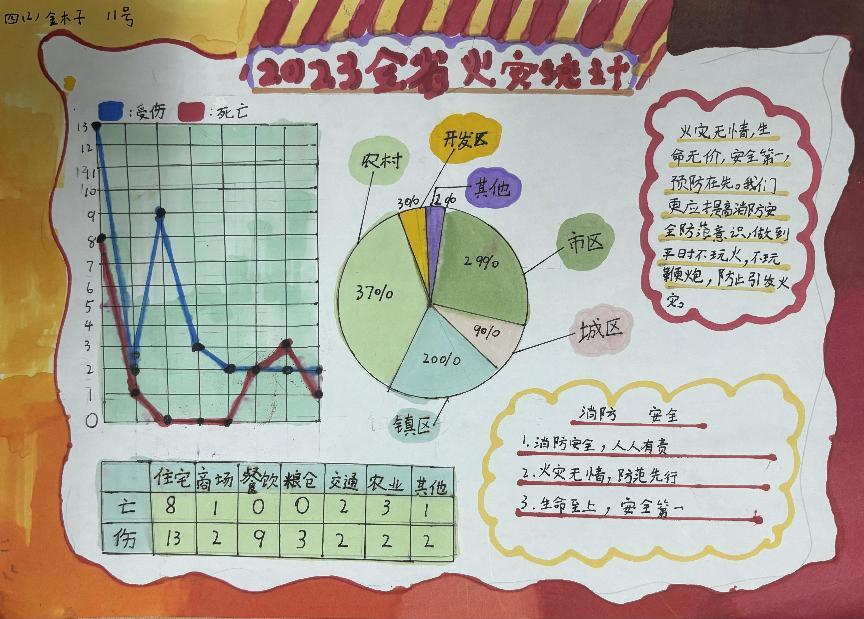 四(2) 金木子 11号
2023全省火灾统计
:受伤 :死亡
13
12
11
10
9
8
7
6
5
4
3
2
1
0
农村
开发区
其他
市区
城区
镇区
3%
2%
29%
9%
20%
37%
住宅 商场 餐饮 粮仓 交通 农业 其他
亡 8 1 0 0 2 3 1
伤 13 2 9 3 2 2 2
火灾无情,生
命无价,安全第一,
预防在先。我们
更应提高消防安
全防范意识,做到
平时不玩火,不玩
鞭炮,防止引发火
灾。
消防 安全
1.消防安全,人人有责
2.火灾无情,防范先行
3.生命至上,安全第一